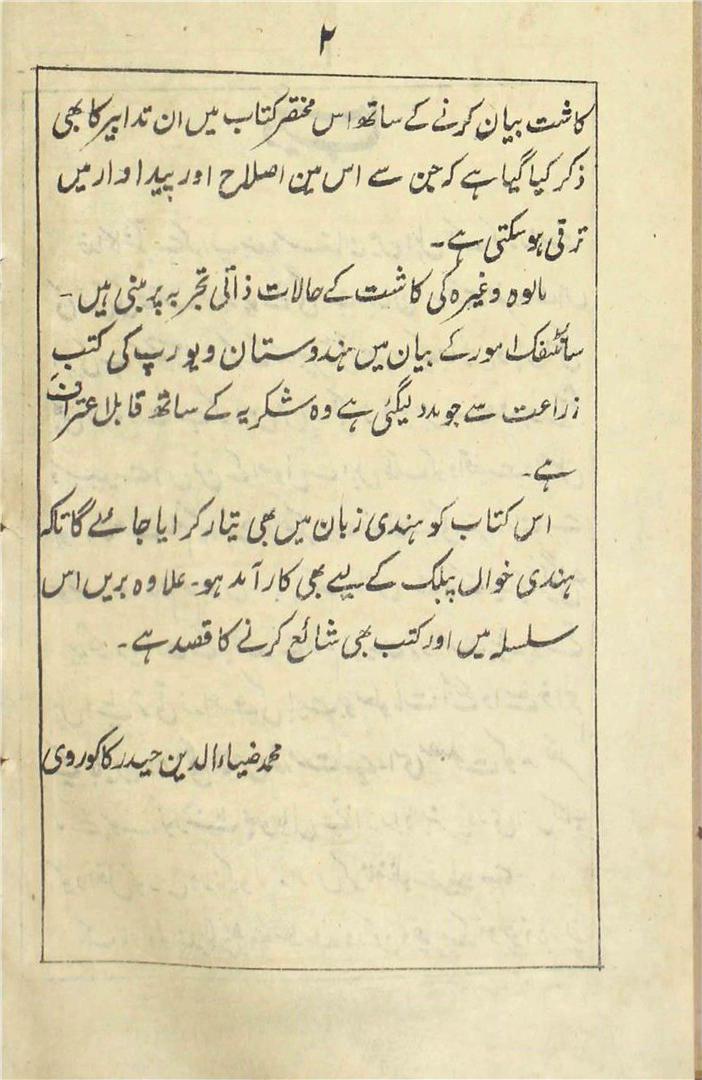 ۲
کاشت بیان کرنے کے ساتھ اس مختصر کتاب میں ان تدابیر کا بھی
ذکر کیا گیا ہے کہ جن سے اس مین اصلاح اور پیداوار میں
ترقی ہو سکتی ہے۔
مالوہ وغیرہ کی کاشت کے حالات ذاتی تجربہ پر مبنی ہیں۔
سائنٹفک امور کے بیان میں ہندوستان و یورپ کی کتب
زراعت سے جو مدد لیگئی ہے وہ شکریہ کے ساتھ قابل اعتراف
ہے۔
اس کتاب کو ہندی زبان میں بھی تیار کرایا جائے گا تاکہ
ہندی خواں پبلک کے لیے بھی کار آمد ہو۔ علاوہ بریں اس
سلسلہ میں اور کتب بھی شائع کرنے کا قصد ہے۔
محمد ضیاء الدین حیدر کاکوروی